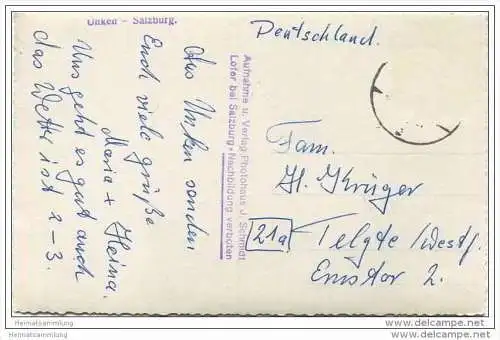 Unken – Salzburg.
Aus Unken senden
Euch viele Grüße
Maria + Heima.
Uns geht es gut auch
das Wetter ist 2-3.
Aufnahme u. Verlag Photohaus J. Schmidt
Lofer bei Salzburg - Nachbildung verboten
Deutschland.
Fam.
H. Krüger
21a Telgte/Westf.
Emstor 2.
Heimatsammlung
Heimatsammlung
www.delcampe.net
Heimatsammlung